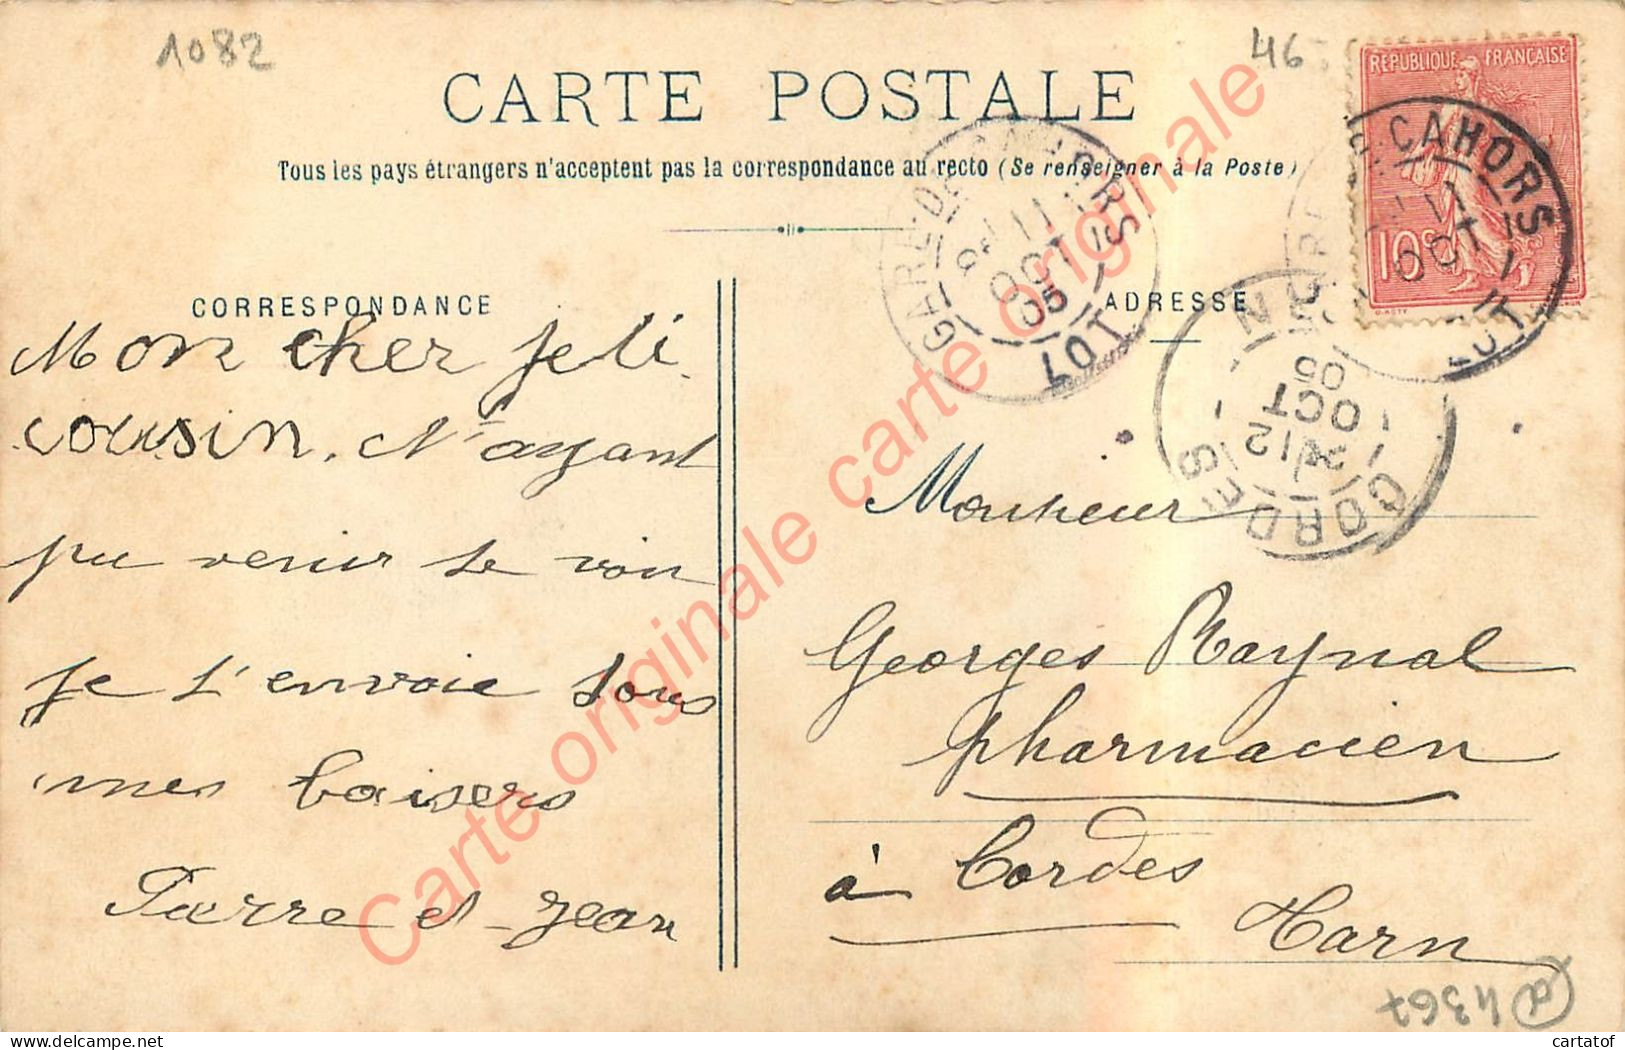 1082
46
CARTE POSTALE
Tous les pays étrangers n'acceptent pas la correspondance au recto (Se renseigner à la Poste)
REPUBLIQUE FRANÇAISE
10c
CAHORS
11
OCT
LOT
GARE DE CAHORS
11
OCT
05
LOT
CORDES
12
OCT
05
CORRESPONDANCE
ADRESSE
Mon cher petit
cousin. N'ayant
pu venir te voir
je t'envoie tous
mes baisers
Pierre et Jean
Monsieur
Georges Raynal
pharmacien
à Cordes
Tarn
@ 4367
Carte originale carte originale
Carte originale carte originale
cartatof